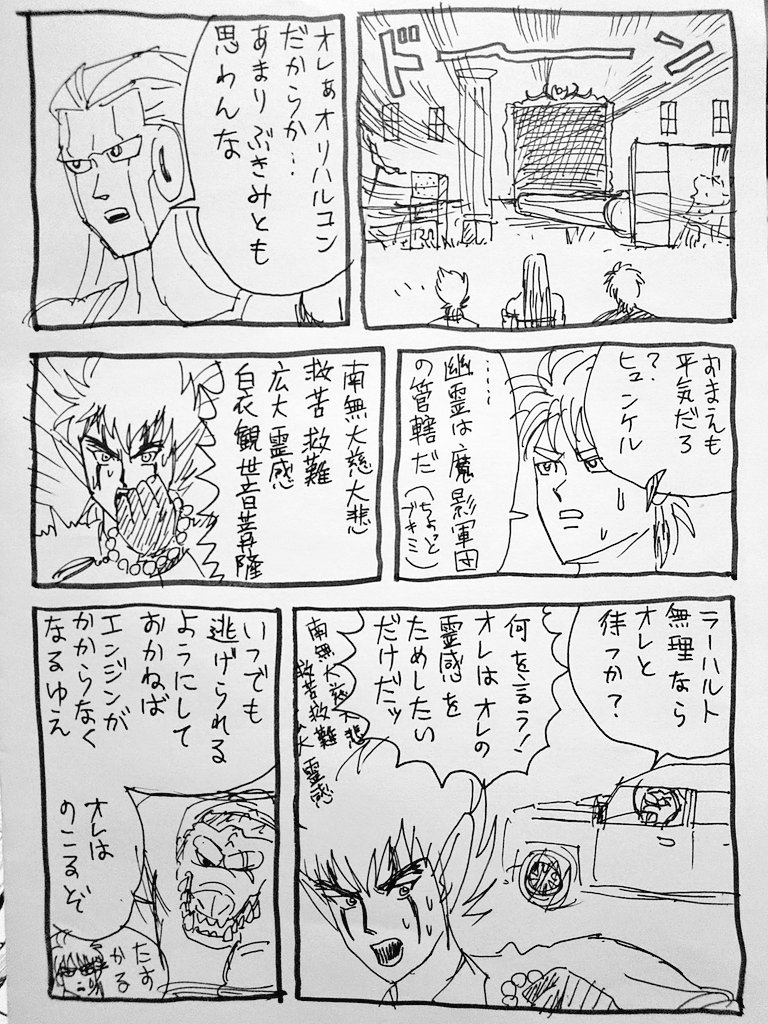 ドーン
オレぁオリハルコン
だからか…
あまりぶきみとも
思わんな
おまえも
平気だろ
?
ヒュンケル
……
幽霊は魔影軍団
の管轄だ
(ちょっと
ブキミ)
南無大慈大悲
救苦救難
広大霊感
白衣観世音菩薩
ラーハルト
無理なら
オレと
待つか?
何を言う!
オレはオレの
霊感を
ためしたい
だけだッ
南無大慈大悲
救苦救難
大霊感
いつでも
逃げられる
ようにして
おかねば
エンジンが
かからなく
なるゆえ
オレは
のこるぞ
たす
かる